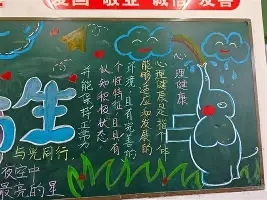 爱国 敬业 诚信 友善
心理健康
心理健康是指个体
能够适应和发展的
环境，且具有完善的
个性特征，且具有
认知积极状态
并能保持正常为
生
与光同行，
夜空中
最亮的星